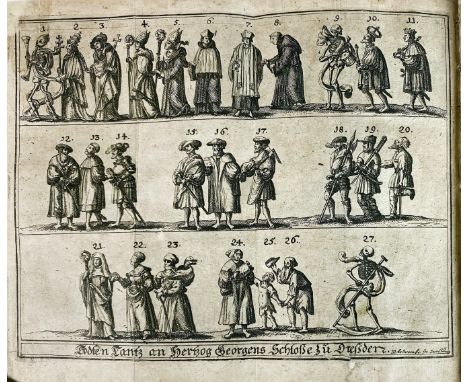 1. 2. 3. 4. 5. 6. 7. 8. 9. 10. 11.
12. 13. 14. 15. 16. 17. 18. 19. 20.
21. 22. 23. 24. 25. 26. 27.
Todten Tantz an Hertzog Georgens Schloße zu Dreßden.